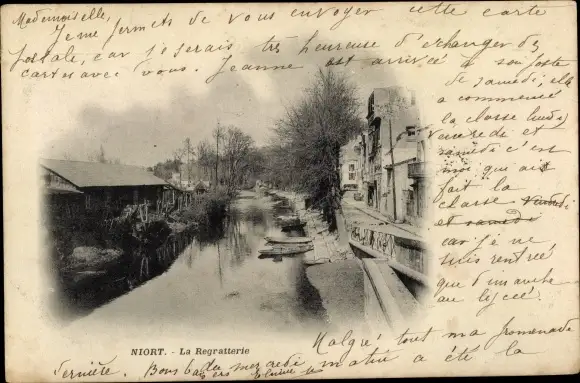 Mademoiselle,
Je me permets de vous envoyer cette carte
postale, car je serais très heureuse d'échanger des
cartes avec vous. Jeanne est arrivée à son poste
de samedi, elle
a commencé
la classe lundi,
et
samedi c'est
moi qui ait
fait la
classe vendredi
et samedi
car je ne
suis rentrée
que dimanche
au lycée.
Malgré tout ma promenade
dernière. matin a été la
NIORT. - La Regratterie